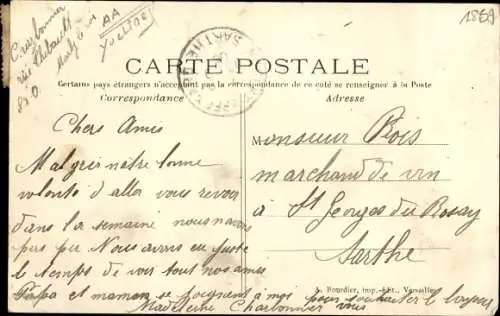 Charbonnier
rue Thibault
Marly
S&O
AA
Yvelines
1859
SARTHE
CARTE POSTALE
Certains pays étrangers n'acceptant pas la correspondance de ce coté se renseigner à la Poste
Correspondance
Adresse
Chers Amis
Malgrés nôtre bonne
volonté d'aller vous revoir
dans la semaine nous n'avons
pas pu Nous avons eu juste
le temps de voir tout nos amis
Papa et maman se joignent a moi pour souhaiter le bonjour
Madeleine Charbonnier
Monsieur Bois
marchand de vin
à St Georges du Rosay
Sarthe
A. Bourdier, imp.-édit., Versailles